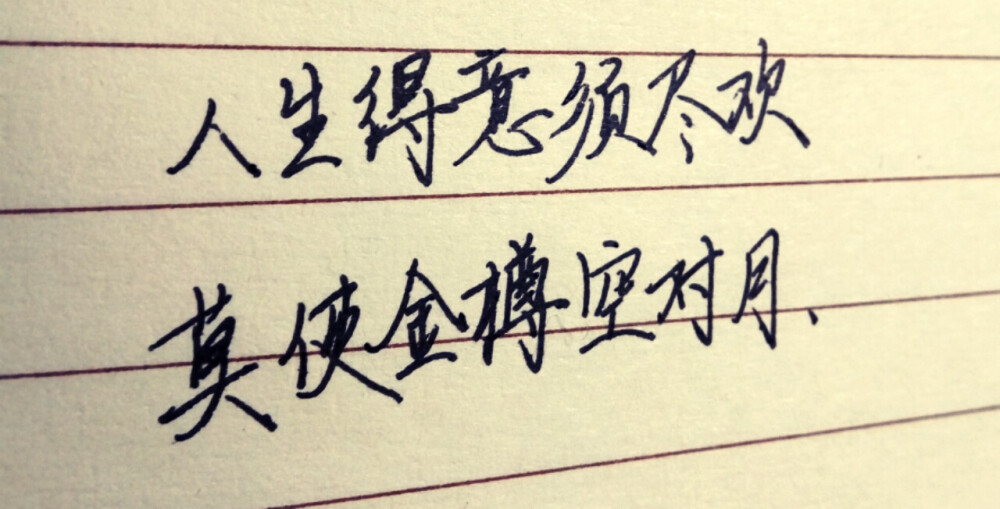 人生得意须尽欢
莫使金樽空对月、